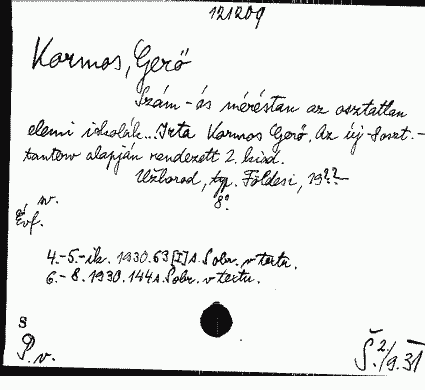 121209
Kormos, Gerő
Szám- és méréstan az osztatlan
elemi iskolák... Irta Kormos Gerő. Az új 8oszt.-
tanterv alapján rendezett 2. kiad.
Užhorod, typ. Földesi, 19??
8°
v.
Évf.
4.-5.-ik. 1930. 63 [I] s. Sobr. v textu.
6.-8. 1930. 144 s. Sobr. v textu.
s
P. v.
Š. 2/9.31